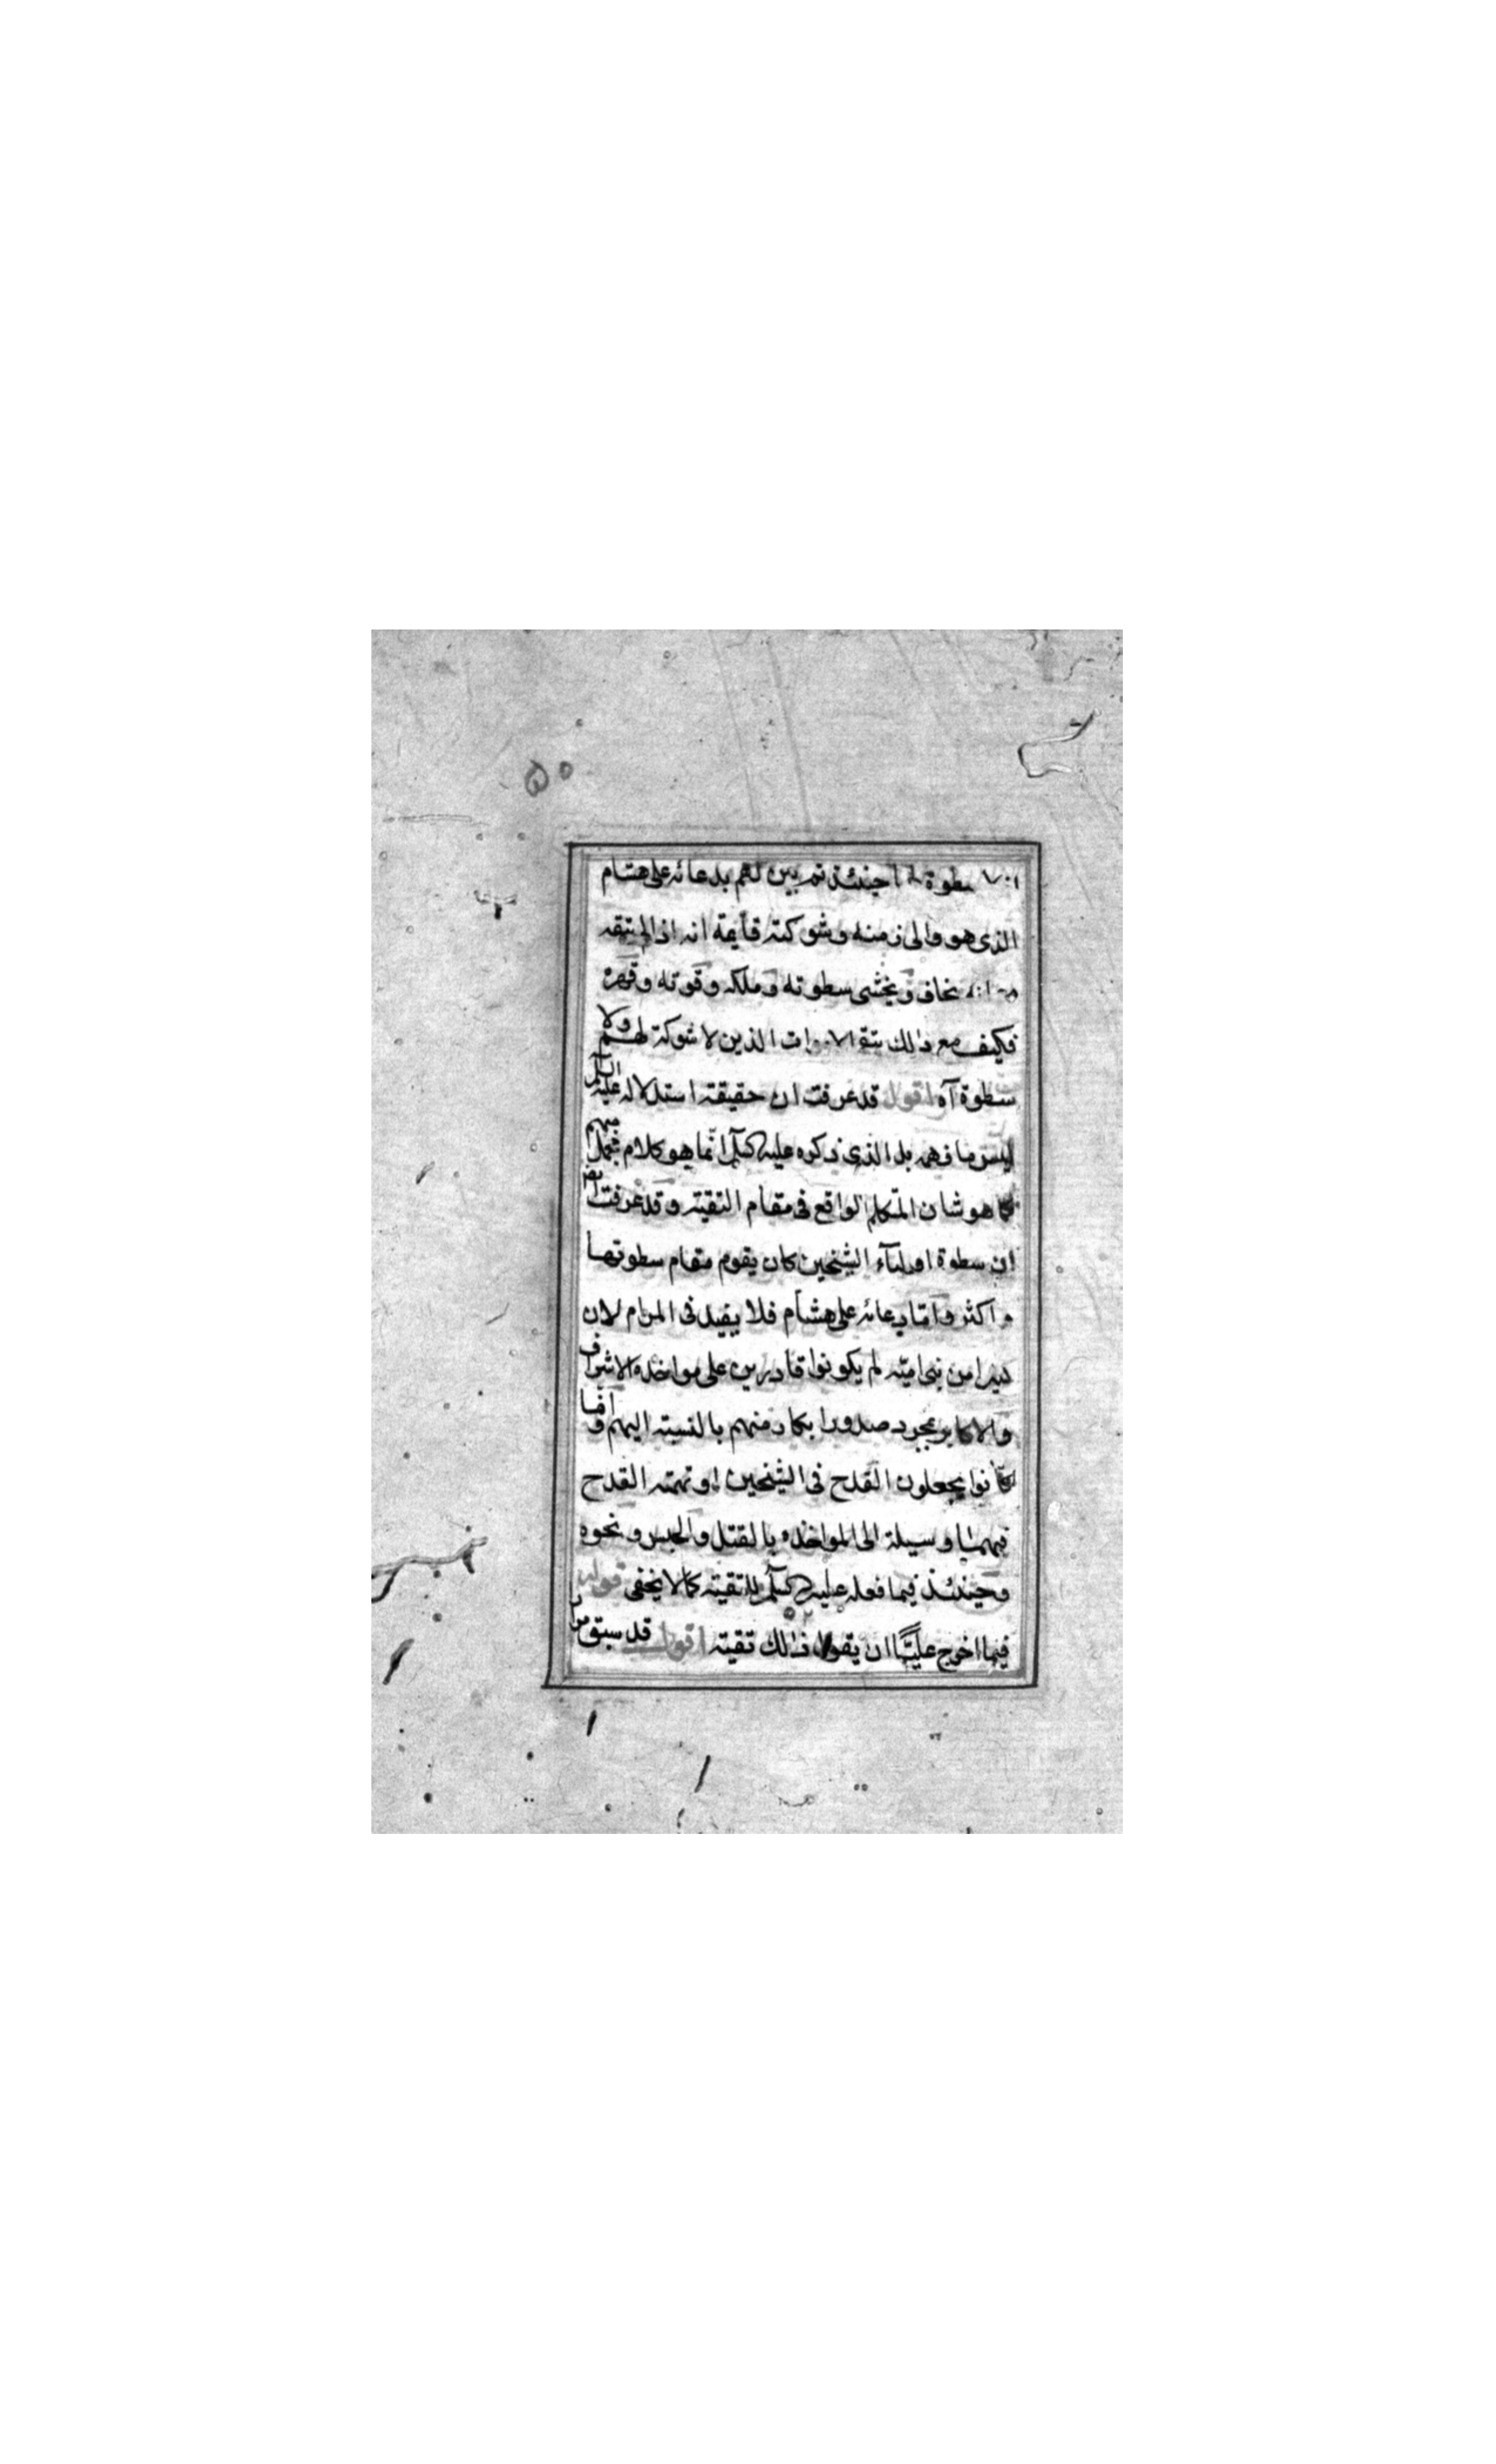 ۵۰
سطوة حينئذ ثم بين لهم بدعائه على هشام
الذى هو والى زمنه وشوكته قايمة انه اذا لم يتقه
يخاف ويخشى سطوته وملكه وقوته وقهره
فكيف مع ذلك يتقى الذين لا شوكة لهم ولا
سطوة آه اقول قد عرفت ان حقيقة استدلاله عليه السلم
ليس ما فهمه بل الذى ذكره عليه السلم انما هو كلام مجمل مبهم
كما هو شان المتكلم الواقع فى مقام التقية وقد عرفت ايضا
ان سطوة اولياء الشيخين كان يقوم مقام سطوتهما
واكثر واما دعائه على هشام فلا يفيد فى المرام لان
كثيرا من بنى امية لم يكونوا قادرين على مواخذه الاشراف
والاكابر بمجرد صدور انكار منهم بالنسبة اليهم و انما
كانوا يجعلون القدح فى الشيخين او تهمة القدح
فيهما وسيلة الى المواخذه بالقتل والحبس ونحوه
وحينئذ فيما فعله عليه السلم للتقية كما لا يخفى قوله
فيما اخوج عليا ان يقول ذلك تقية اقول قد سبق مرارا